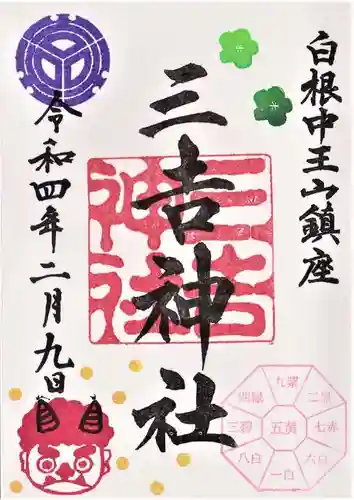 白根中王山鎮座
三吉神社
三吉神社
令和四年二月九日
九紫
二黒
七赤
六白
一白
八白
三碧
四緑
五黄